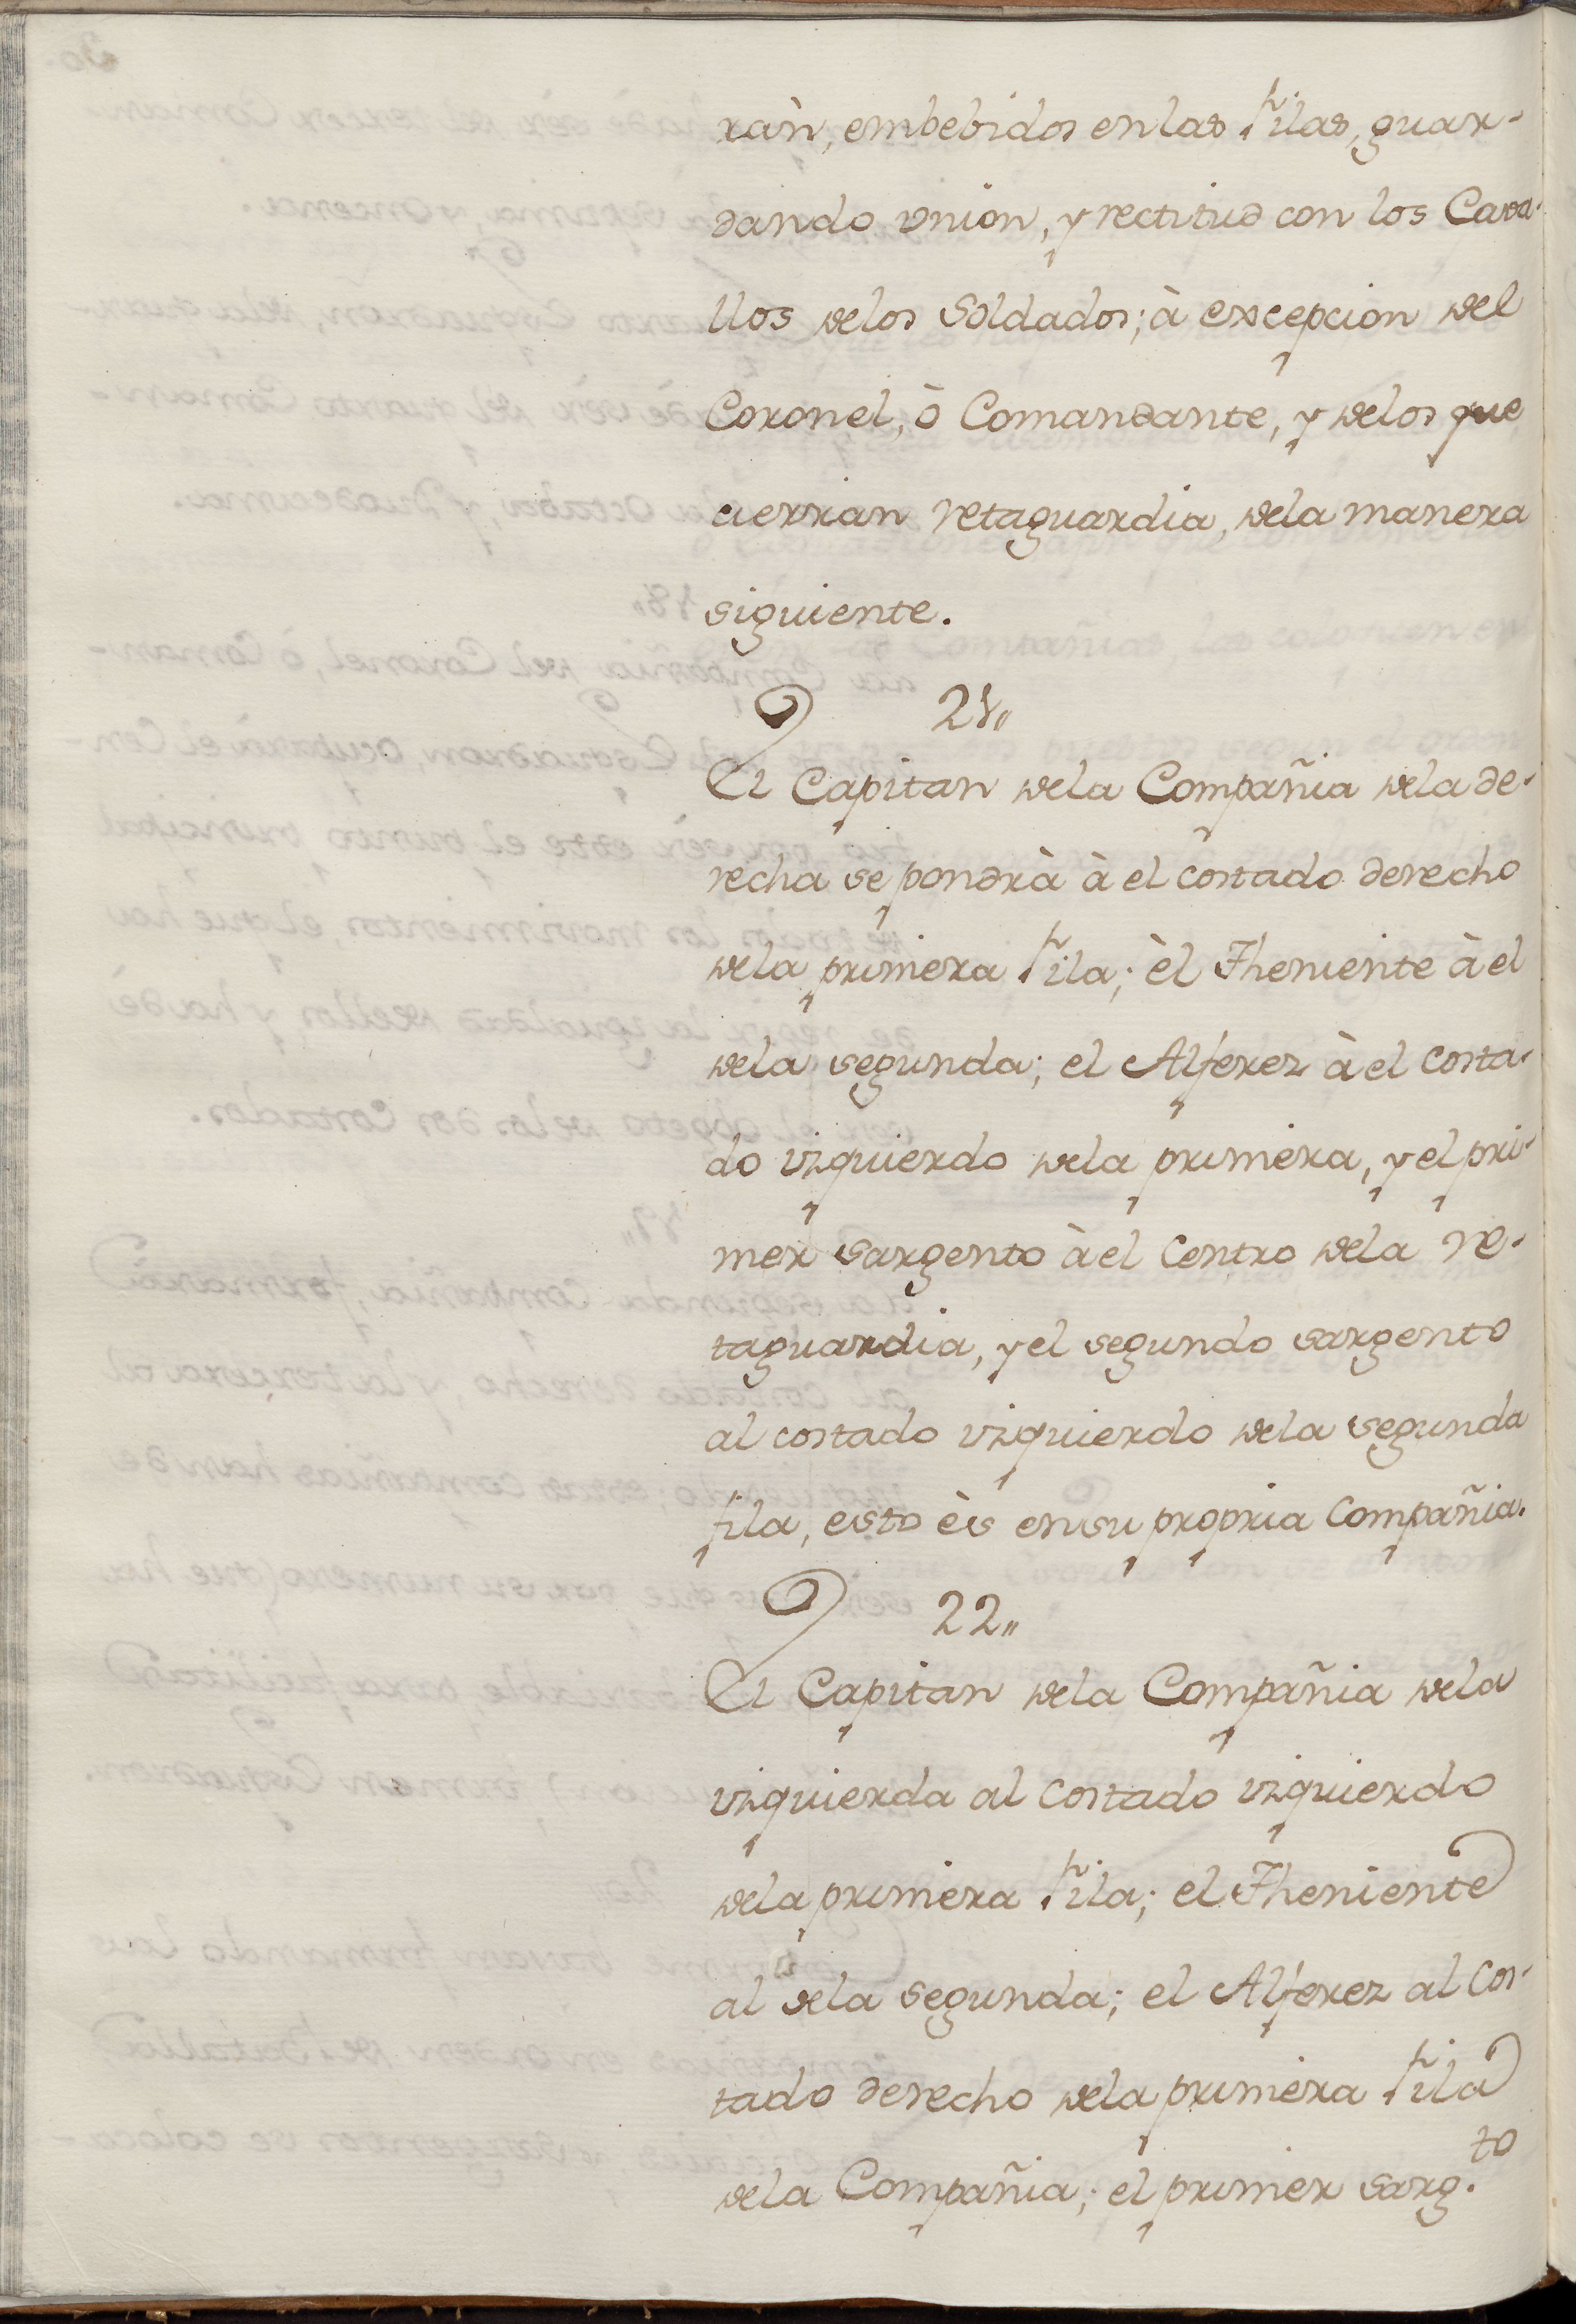 ràn, embebidos en las filas, guar-
dando union, y rectitud con los Cava-
llos delos Soldados; à excepcion del
Coronel, ò Comandante, y delos que
cierran retaguardia, dela manera
siguiente.
21„
El Capitan dela Compañia dela de-
recha se pondrà à el costado derecho
dela primera fila; èl Theniente à el
dela segunda; el Alferez à el costa-
do izquierdo dela primera, y el pri-
mer sargento à el Centro dela re-
taguardia, y el segundo sargento
al costado izquierdo dela segunda
fila, esto ès en su propria Compañia.
22„
El Capitan dela Compañia dela
izquierda al costado izquierdo
dela primera fila; el Theniente
al dela segunda; el Alferez al cos-
tado derecho dela primera fila
dela Compañia; el primer sarg.to